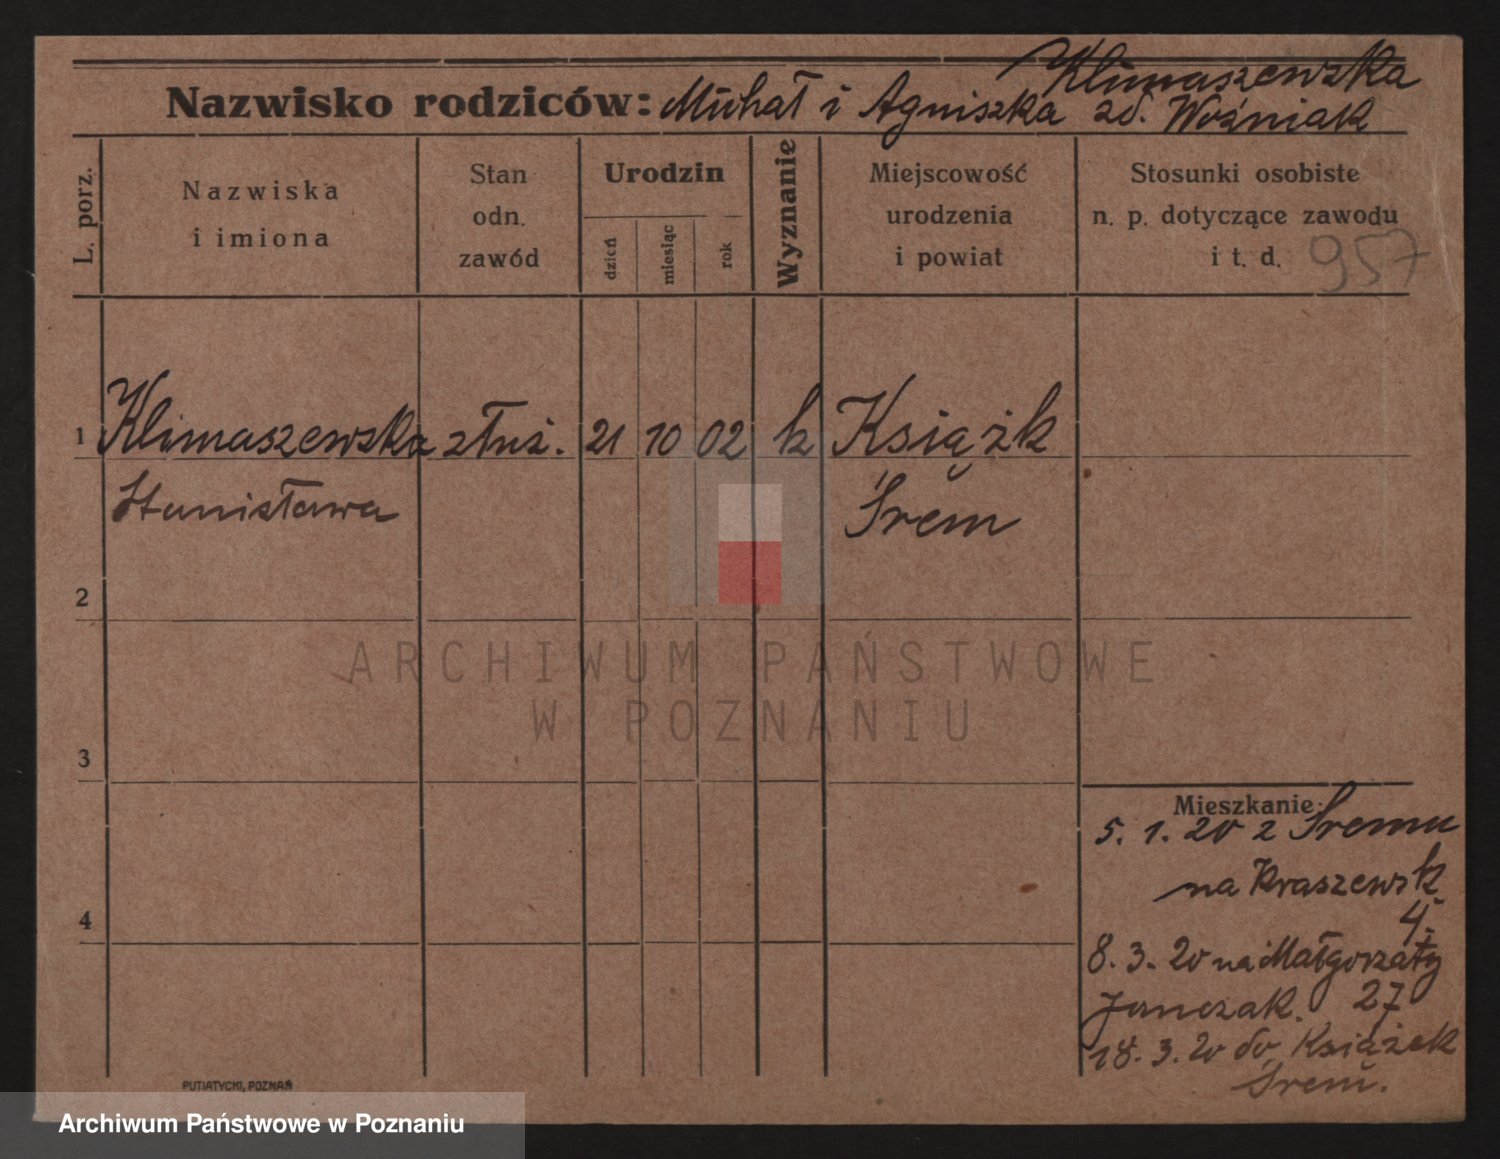 Klimaszewska
Nazwisko rodziców: Michał i Agniszka zd. Woźniak
L. porz.
Nazwiska
i imiona
Stan
odn.
zawód
Urodzin
dzień
miesiąc
rok
Wyznanie
Miejscowość
urodzenia
i powiat
Stosunki osobiste
n. p. dotyczące zawodu
i t. d.
957
1 Klimaszewska złuż. 21 10 02 k Książk
Stanisława Śrem
2
ARCHIWUM PAŃSTWOWE
W POZNANIU
3
Mieszkanie:
5. 1. 20 z Śremu
na Kraszewsk
4.
4
8. 3. 20 na Małgorzaty
Janczak. 27
18. 3. 20 do Książek
Śrem.
PUTIATYCKI, POZNAŃ
Archiwum Państwowe w Poznaniu